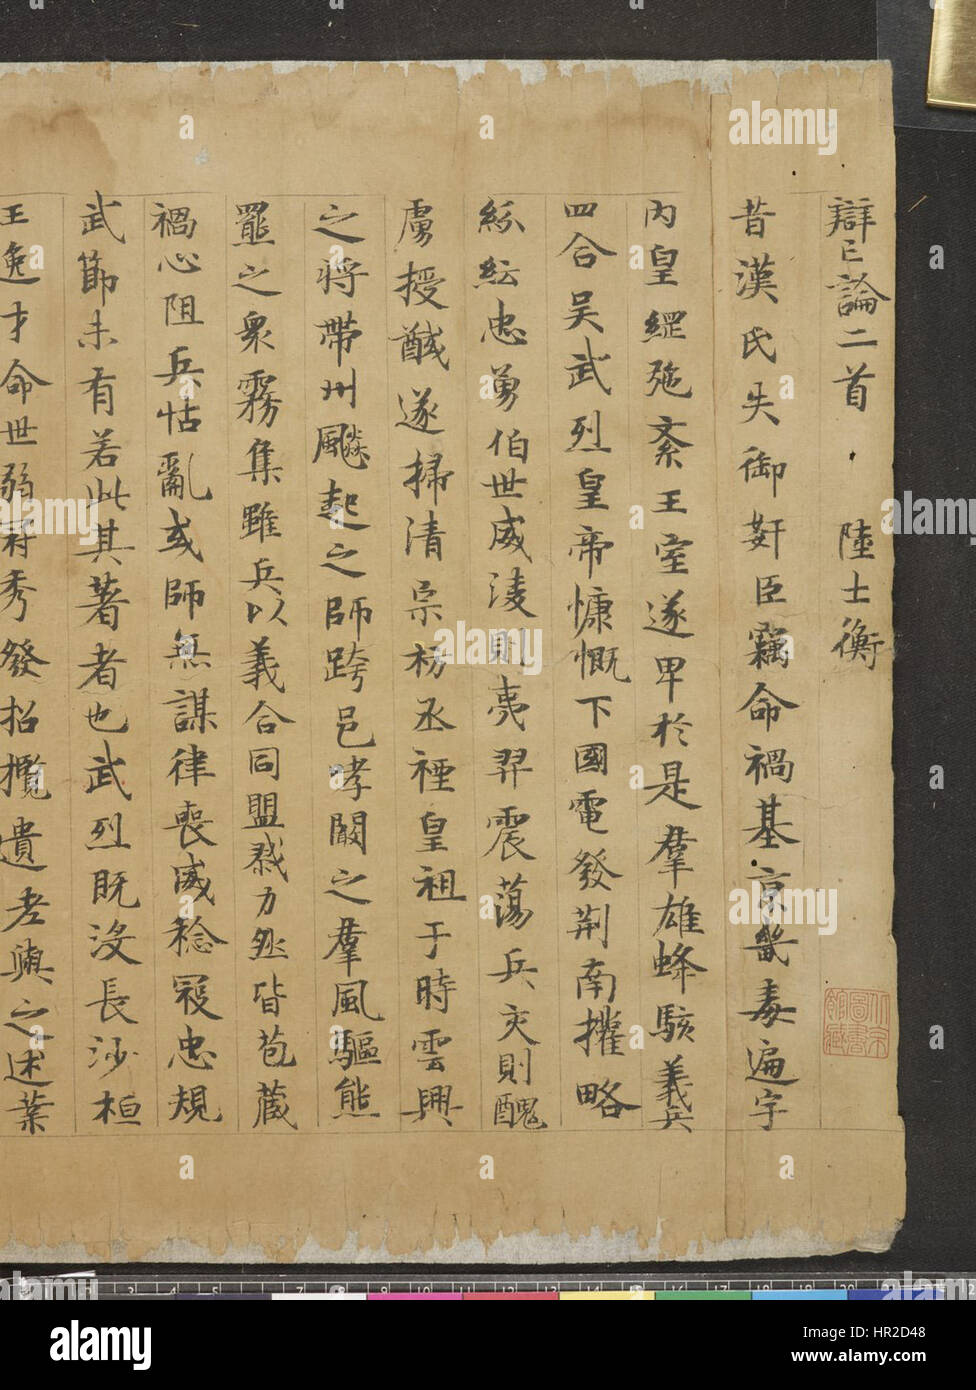 辯亡論二首 陸士衡
昔漢氏失御姧臣竊命禍基京畿毒遍宇
内皇綱弛紊王室遂卑於是羣雄蜂駭義兵
四合吴武烈皇帝慷慨下國電發荆南擁略
紛紜忠勇伯世威淩則夷羿震蕩兵交則醜
虜授馘遂掃清宗枋丞禋皇祖于時雲興
之將帶州飈起之師跨邑哮闞之羣風驅熊
羆之衆霧集雖兵以義合同盟勠力然皆苞藏
禍心阻兵怙亂或師無謀律喪威稔寇忠規
武節未有若此其著者也武烈既沒長沙桓
王逸才命世弱冠秀發招攬遺老與之述業
北京圖書館藏
2 3 4 5 7 8 9 10 11 12 13 14 15 16 17 18 19 20 21
alamy
a
HR2D48
www.alamy.com